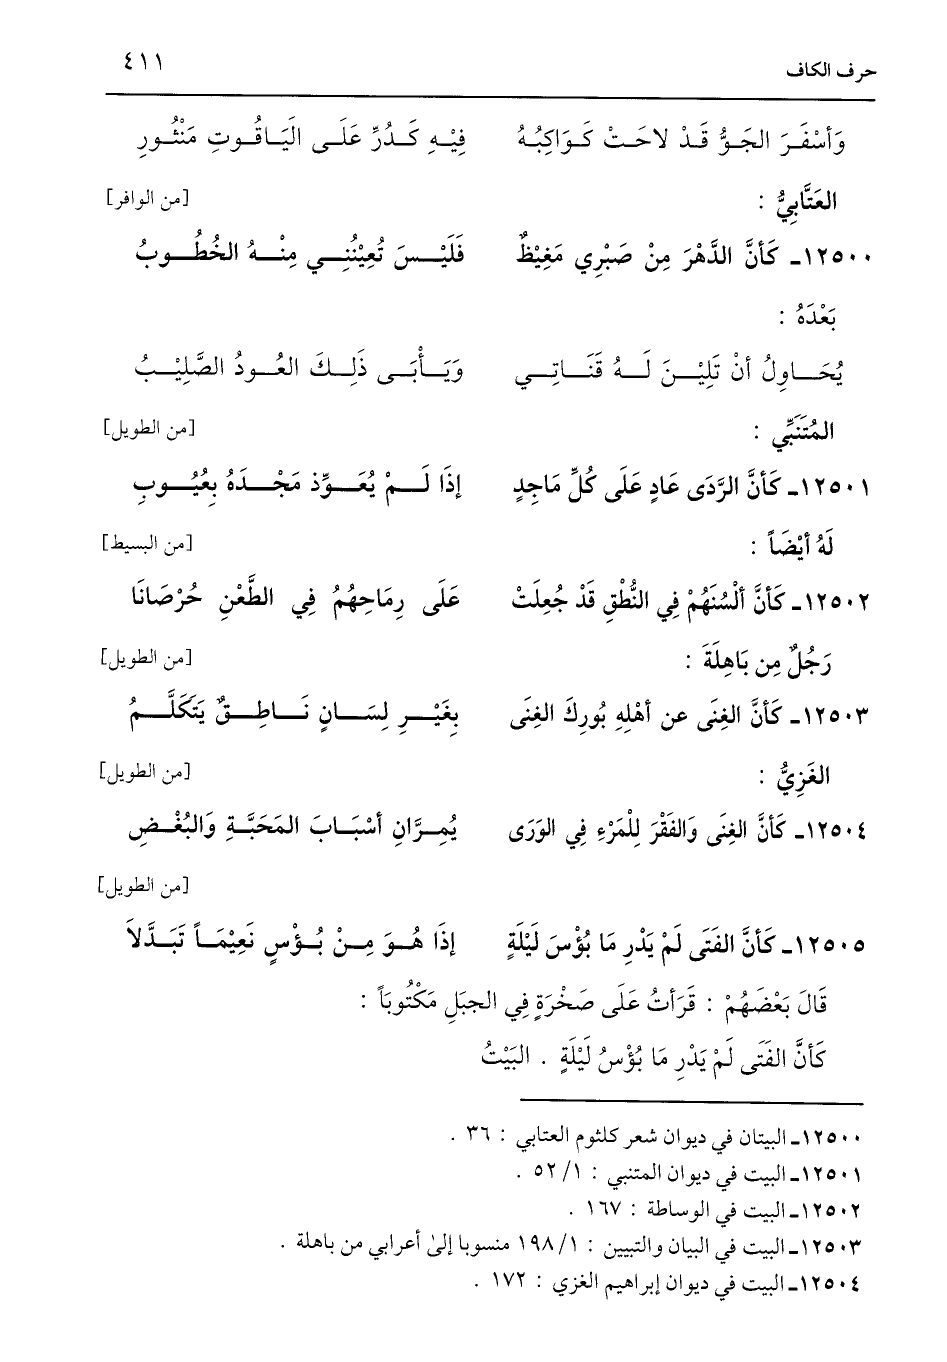 حرف الكاف ٤١١
وَأَسْفَرَ الجَوُّ قَدْ لاحَتْ كَوَاكِبُهُ فِيْهِ كَدُرٍّ عَلَى الْيَاقُوتِ مَنْثُورِ
العَتَّابِيُّ : [من الوافر]
١٢٥٠٠ـ كَأنَّ الدَّهْرَ مِنْ صَبْرِي مَغِيْظٌ فَلَيْسَ تُعِيْنُنِي مِنْهُ الخُطُوبُ
بَعْدَهُ :
يُحَاوِلُ أنْ تَلِيْنَ لَهُ قَنَاتِي وَيَأْبَى ذَلِكَ العُودُ الصَّلِيْبُ
المُتَنَبِّي : [من الطويل]
١٢٥٠١ـ كَأنَّ الرَّدَى عَادٍ عَلَى كُلِّ مَاجِدٍ إذَا لَمْ يُعَوِّذ مَجْدَهُ بِعُيُوبِ
لَهُ أيْضَاً : [من البسيط]
١٢٥٠٢ـ كَأنَّ ألْسُنَهُمْ فِي النُّطْقِ قَدْ جُعِلَتْ عَلَى رِمَاحِهُمُ فِي الطَّعْنِ خُرْصَانَا
رَجُلٌ مِن بَاهِلَةَ : [من الطويل]
١٢٥٠٣ـ كَأنَّ الغِنَى عن أهْلِهِ بُورِكَ الغِنَى بِغَيْرِ لِسَانٍ نَاطِقٌ يَتَكَلَّمُ
الغَزِيُّ : [من الطويل]
١٢٥٠٤ـ كَأنَّ الغِنَى وَالفَقْرَ لِلْمَرْءِ فِي الوَرَى يُمِرَّانِ أسْبَابَ المَحَبَّةِ وَالبُغْضِ
[من الطويل]
١٢٥٠٥ـ كَأنَّ الفَتَى لَمْ يَدْرِ مَا بُؤْسَ لَيْلَةٍ إذَا هُوَ مِنْ بُؤْسٍ نَعِيْمَاً تَبَدَّلاَ
قَالَ بَعْضَهُمْ : قَرَأتُ عَلَى صَخْرَةٍ فِي الجبَلِ مَكْتُوبَاً :
كَأنَّ الفَتَى لَمْ يَدْرِ مَا بُؤْسُ لَيْلَةٍ . البَيْتُ
١٢٥٠٠ـ البيتان في ديوان شعر كلثوم العتابي : ٣٦ .
١٢٥٠١ـ البيت في ديوان المتنبي : ١/ ٥٢ .
١٢٥٠٢ـ البيت في الوساطة : ١٦٧ .
١٢٥٠٣ـ البيت في البيان والتبيين : ١/ ١٩٨ منسوبا إلىٰ أعرابي من باهلة .
١٢٥٠٤ـ البيت في ديوان إبراهيم الغزي : ١٧٢ .